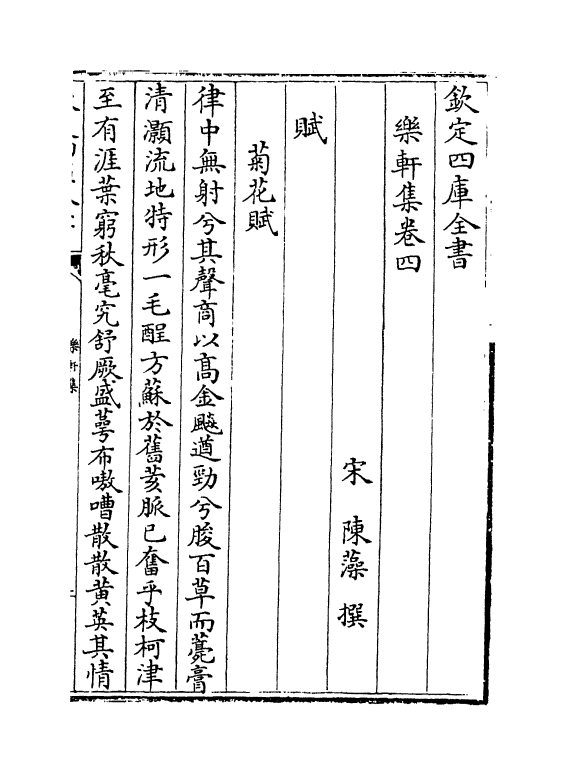 欽定四庫全書
樂軒集卷四
宋　陳藻　撰
賦
菊花賦
律中無射兮其聲商以髙金飈遒勁兮朘百草而薧膏
清灝流地特形一毛酲方蘇於舊荄脈已奮乎枝柯津
至有涯葉窮秋毫究舒厥盛蕚布嗷嘈散散黄英其情
樂軒集